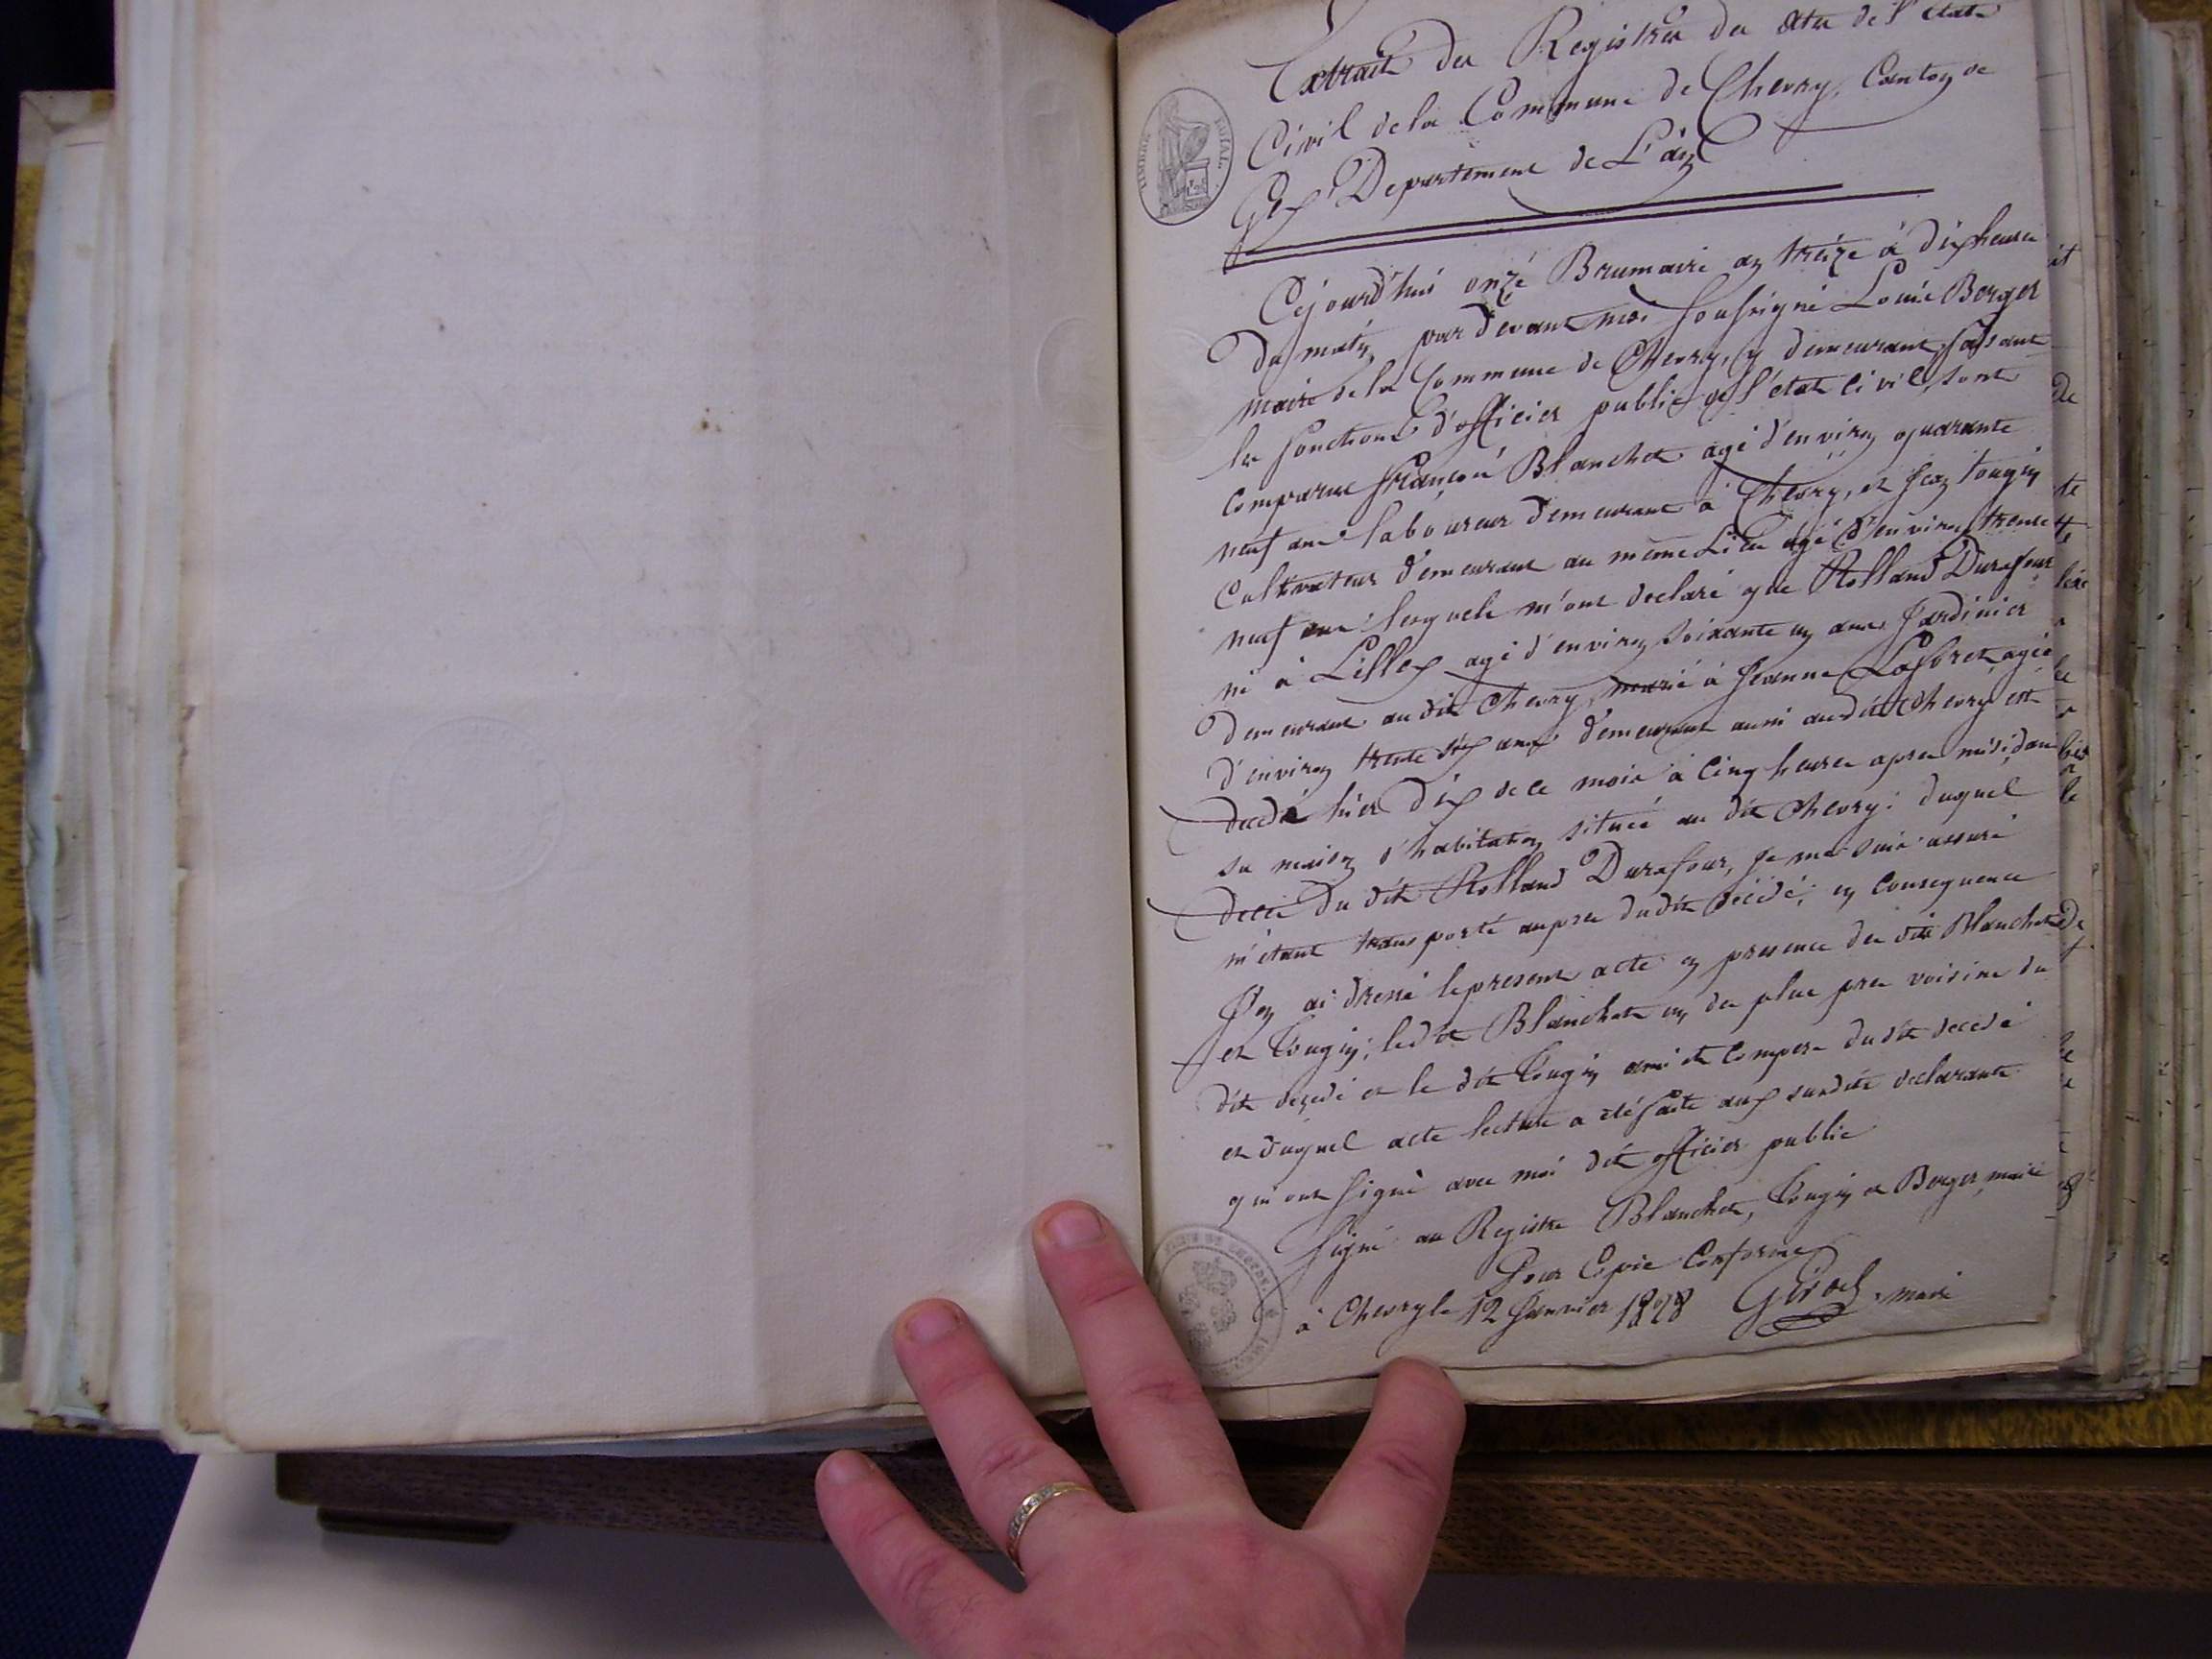 Extrait des Registres des actes de l'état
Civil de la Commune de Chevry, Canton de
Gex Departement de L'ain
TIMBRE ROYAL
Cejourd'hui onze Brumaire an treize à dix heures
du matin par devant moi soussigné Louis Berger
maire de la Commune de Chevry, y demeurant faisant
les fonctions d'officier public de l'état Civil, sont
comparus françois Blanchet agé d'environ quarante
neuf ans laboureur demeurant à Chevry, et Jean tougin
Cultivateur demeurant au même Lieu agé d'environ trente
neuf ans lesquels m'ont declaré que Rolland Durafour
né à Lellex agé d'environ soixante un ans Jardinier
demeurant au dit Chevry, marié à Jeanne Laforet, agée
d'environ trente six ans demeurant aussi audit Chevry est
decedé hier dix de ce mois à Cinq heures apres midi, dans
sa maison d'habitation située au dit Chevry: duquel
decès du dit Rolland Durafour, je me suis assuré
m'étant transporté aupres dudit décédé; en Consequence
J'en ai dressé le present acte en presence des dits Blanchet
et tougin; ledit Blanchet un des plus pres voisins du
dit decedé et le dit tougin ami et Compere du dit decedé
et duquel acte lecture a été faite aux susdits declarants
qui ont signé avec moi dit officier public
signé au Registre Blanchet, tougin et Berger maire
Pour Copie Conforme
à Chevry le 12 Janvier 1818 Girod, maire